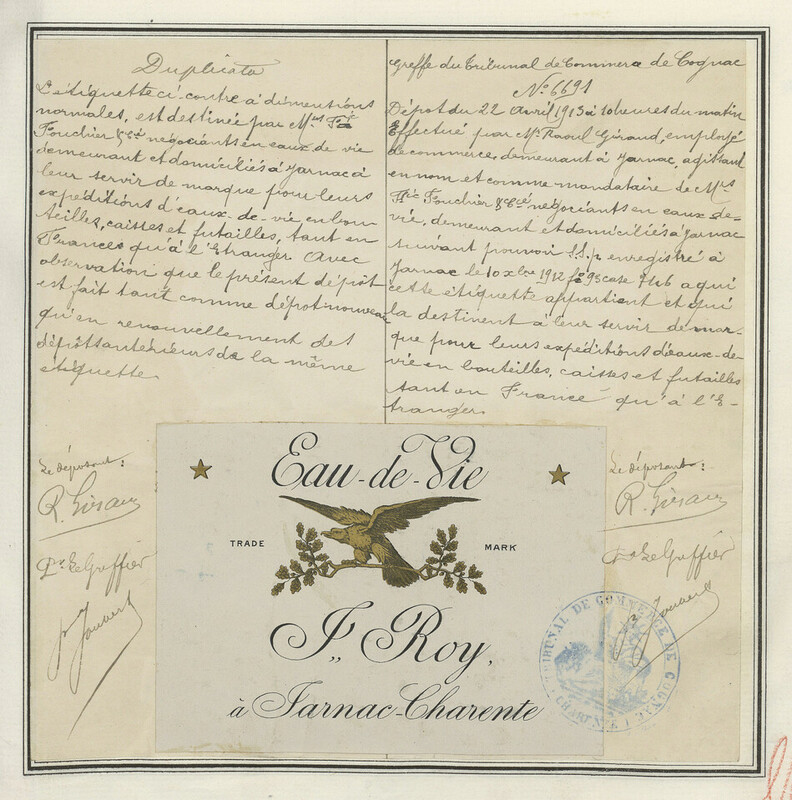 Duplicata
L'étiquette ci-contre à dimentions
normales, est destinée par Mrs Fic
Fouchier & Cie négociants en eaux de vie
demeurant et domiciliés à Jarnac à
leur servir de marque pour leurs
expéditions d'eaux-de-vie en bou-
teilles, caisses et futailles, tant en
France qu'à l'Etranger. Avec
observation que le présent dépôt
est fait tant comme dépôt nouveau
qu'en renouvellement des
dépôts antérieurs de la même
étiquette.
Greffe du Tribunal de Commerce de Cognac
No 6691
Dépôt du 22 Avril 1913 à 10 heures du matin
Effectué par Mr Raoul Giraud, employé
de commerce, demeurant à Jarnac, agissant
en nom et comme mandataire de Mrs
Fic Fouchier & Cie négociants en eaux-de-
vie, demeurant et domiciliés à Jarnac
suivant pouvoir S.S.p. enregistré à
Jarnac le 10 xbre 1912 fo 95 case 946 à qui
cette étiquette appartient et qui
la destinent à leur servir de mar-
que pour leurs expéditions d'eaux-de-
vie en bouteilles, caisses et futailles
tant en France qu'à l'E-
tranger.
Le déposant:
R. Giraud
Pr Le Greffier
Le déposant:
R. Giraud
Pr Le Greffier
Eau-de-Vie
TRADE MARK
J. Roy,
à Jarnac-Charente
TRIBUNAL DE COMMERCE DE COGNAC
(CHARENTE)